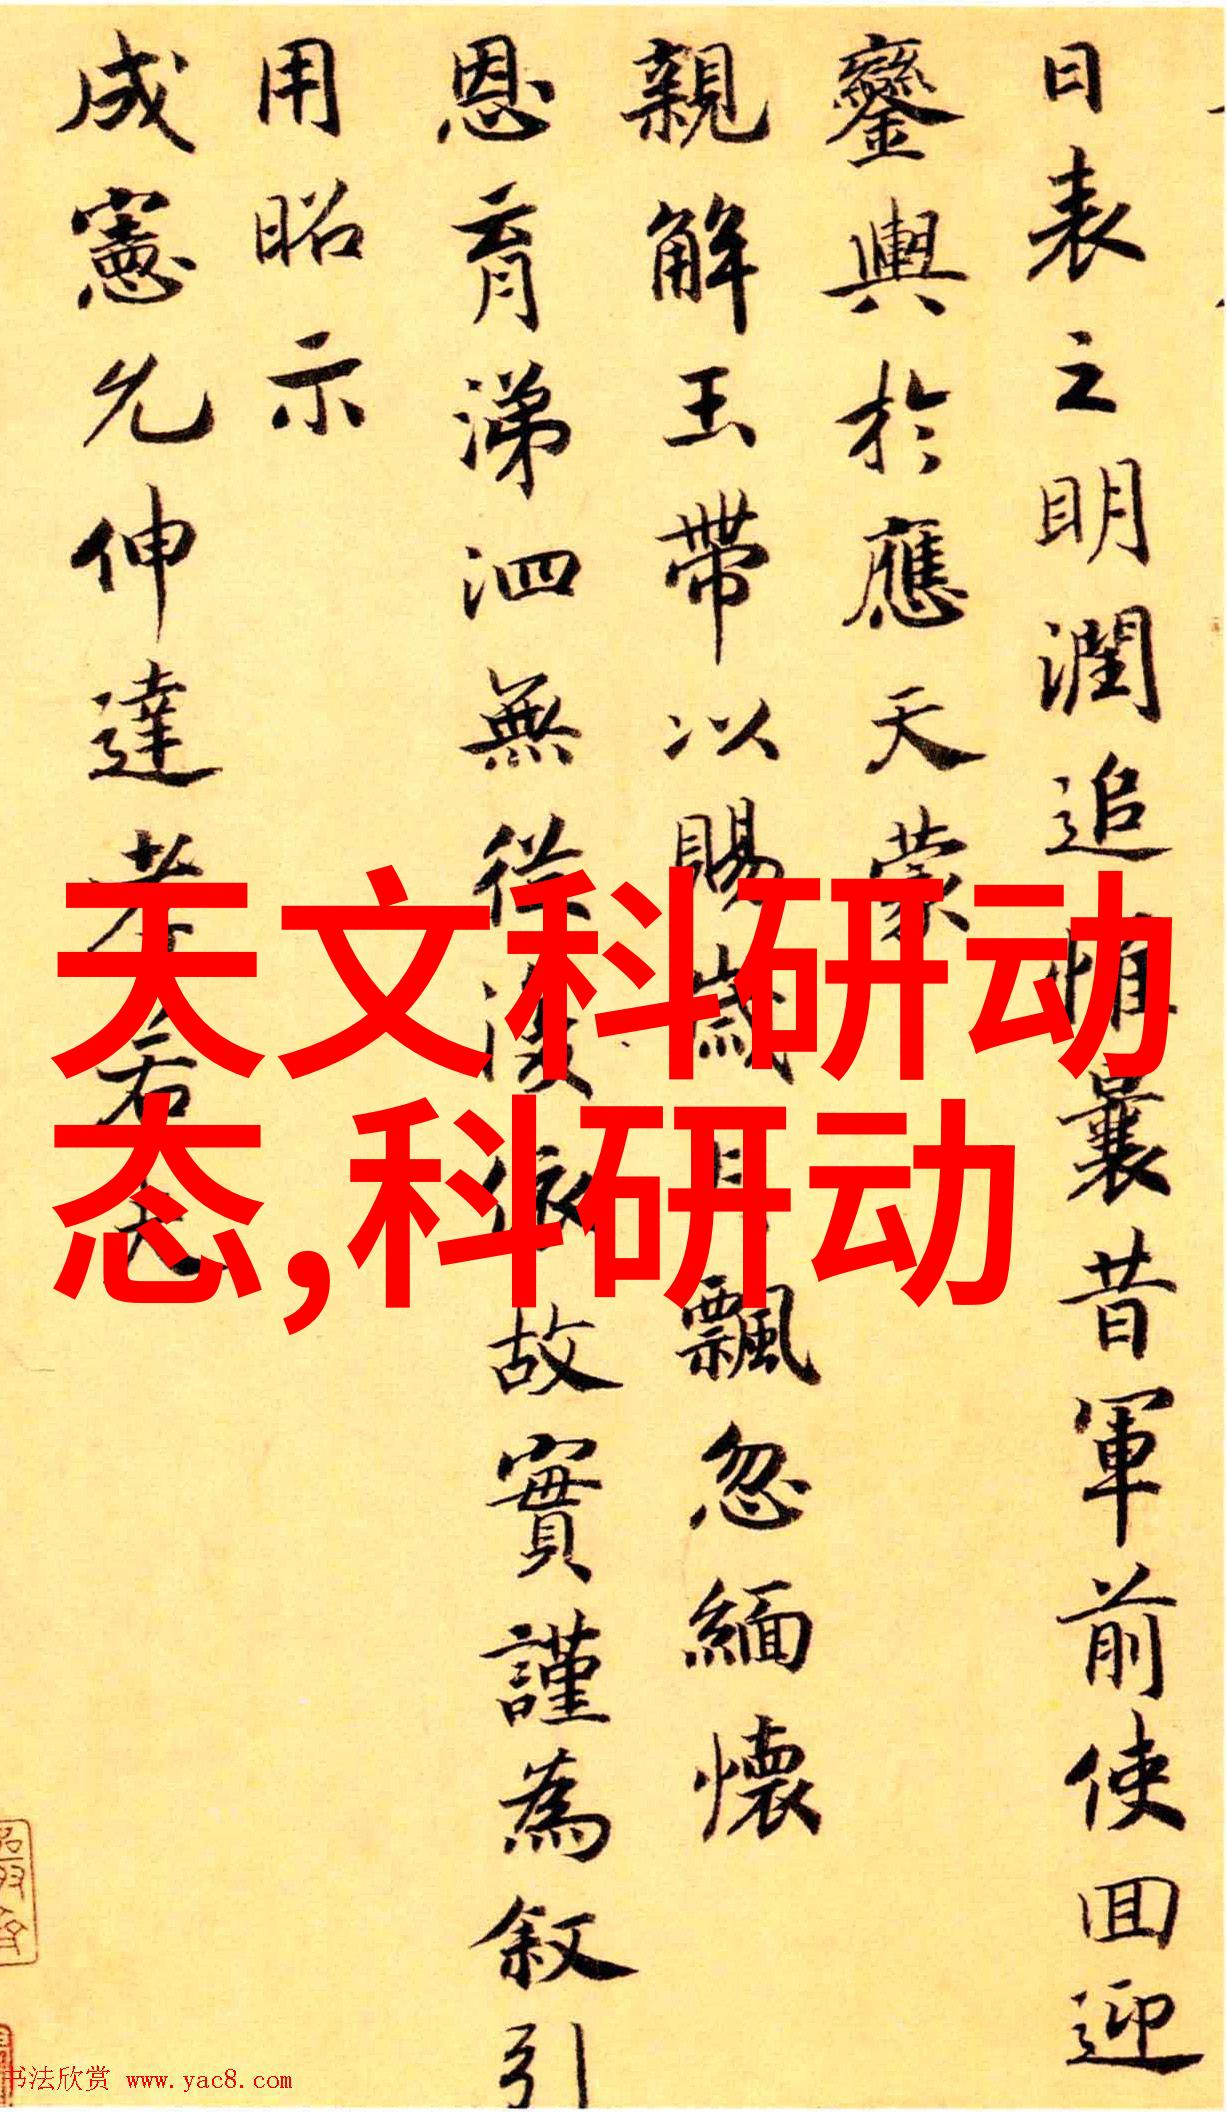 日表之明潤追惟曩昔軍前使回迎
鑾輿於應天蒙
親解玉帶以賜歲月飄忽緬懷
恩育涕泗無從沒依故實謹為叙引
用昭示
成憲尤伸達孝若夫
天文科研动
态,科研动
书法欣赏 www.yac8.com